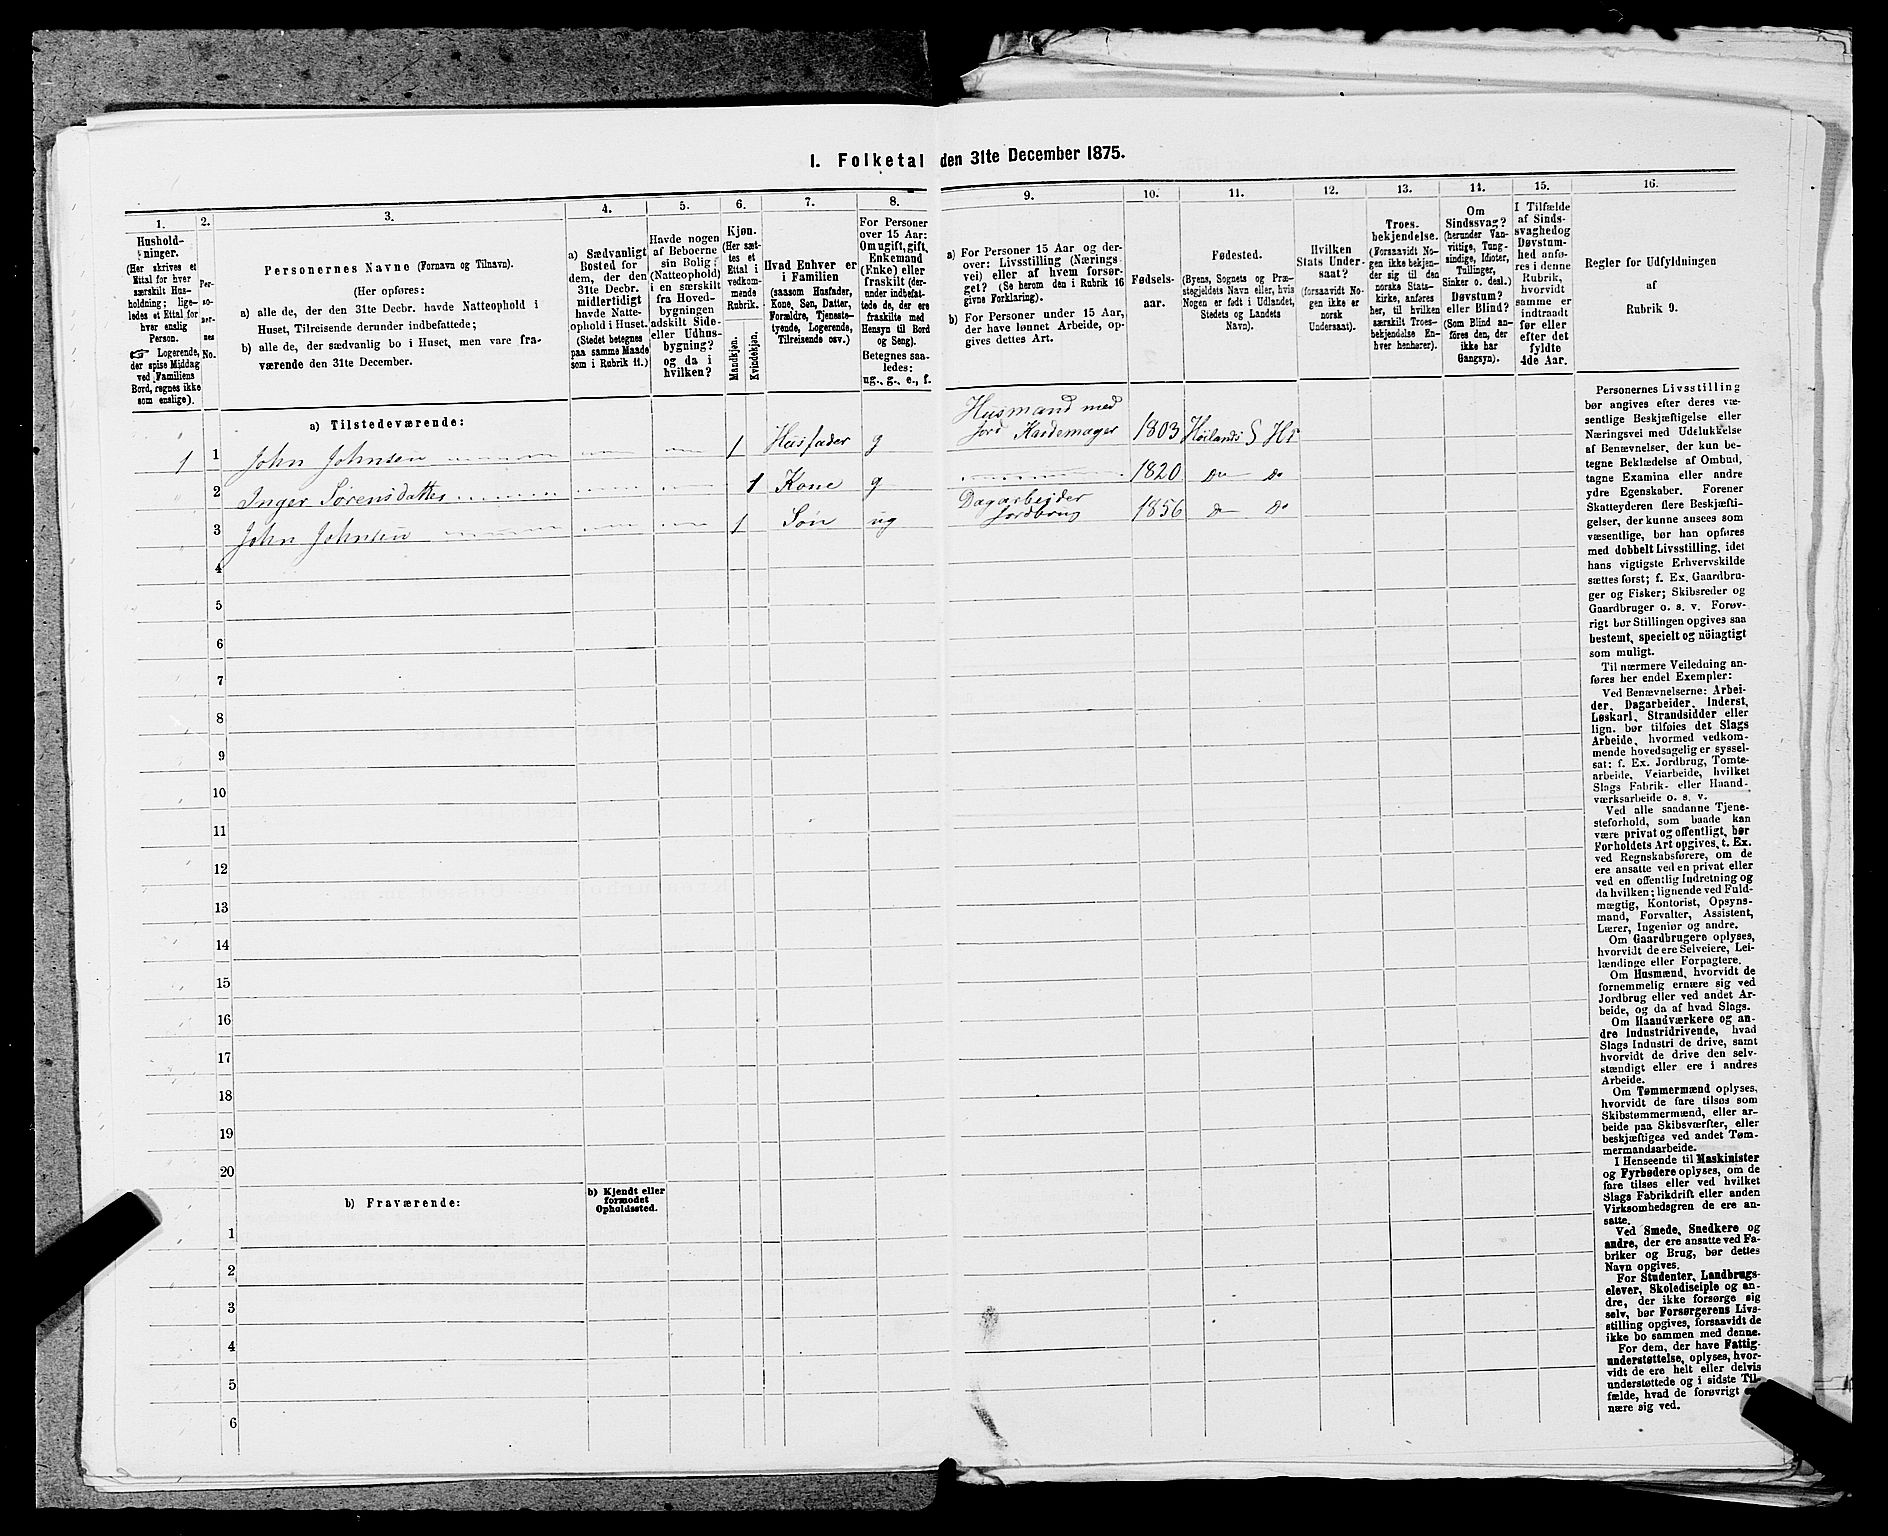 I. Folketal den 31te December 1875.
1. 2. 3. 4. 5. 6. 7. 8. 9. 10. 11. 12. 13. 14. 15. 16.
Hushold-
ninger.
(Her skrives et
Ettal for hver
særskilt Hus-
holdning; lige-
ledes et Ettal for
hver enslig
Person.
☞ Logerende,
der spise Middag
ved Familiens
Bord, regnes ikke
som enslige).
Per-
so-
ner-
nes
No.
Personernes Navne (Fornavn og Tilnavn).
(Her opføres:
a) alle de, der den 31te Decbr. havde Natteophold i
Huset, Tilreisende derunder indbefattede;
b) alle de, der sædvanlig bo i Huset, men vare fra-
værende den 31te December.
a) Sædvanligt
Bosted for
dem, der den
31te Decbr.
midlertidigt
havde Natte-
ophold i Huset.
(Stedet betegnes
paa samme Maade
som i Rubrik 11.)
Havde nogen
af Beboerne
sin Bolig
(Natteophold)
i en særskilt
fra Hoved-
bygningen
adskilt Side-
eller Udhus-
bygning?
og da i
hvilken?
Kjøn.
(Her sæt-
tes et
Ettal i
vedkom-
mende
Rubrik.)
Mandkjøn.
Kvindekjøn.
Hvad Enhver er
i Familien
(saasom Husfader,
Kone, Søn, Datter,
Forældre, Tjeneste-
tyende, Logerende,
Tilreisende osv.)
For Personer
over 15 Aar:
Om ugift, gift,
Enkemand
(Enke) eller
fraskilt (der-
under indbefat-
tede de, der ere
fraskilte med
Hensyn til Bord
og Seng).
Betegnes saa-
ledes:
ug., g., e., f.
a) For Personer 15 Aar og der-
over: Livsstilling (Nærings-
vei) eller af hvem forsør-
get? (Se herom den i Rubrik 16
givne Forklaring).
b) For Personer under 15 Aar,
der have lønnet Arbeide, op-
gives dettes Art.
Fødsels-
aar.
Fødested.
(Byens, Sognets og Præ-
stegjeldets Navn eller, hvis
Nogen er født i Udlandet,
Stedets og Landets
Navn).
Hvilken
Stats Under-
saat?
(forsaavidt No-
gen ikke er
norsk
Undersaat).
Troes-
bekjendelse.
(Forsaavidt No-
gen ikke bekjen-
der sig til den
norske Stats-
kirke, anføres
her, til hvilken
særskilt Troes-
bekjendelse En-
hver henhører).
Om
Sindssvag?
(herunder Van-
vittige, Tung-
sindige, Idioter,
Tullinger,
Sinker o. desl.)
Døvstum?
eller Blind?
(Som Blind an-
føres den, der
ikke har
Gangsyn).
I Tilfælde
af Sinds-
svaghed og
Døvstum-
hed anfø-
res i denne
Rubrik,
hvorvidt
samme er
indtraadt
før eller
efter det
fyldte
4de Aar.
Regler for Udfyldningen
af
Rubrik 9.
a) Tilstedeværende:
1 1 John Johnsen 1 Husfader g Husmand med
Jord Kardemager 1803 Høilands S Hs
2 Inger Sørensdatter 1 Kone g 1820 Do Do
3 John Johnsen 1 Søn ug Dagarbeider
Jordbrug 1856 Do Do
4
5
6
7
8
9
10
11
12
13
14
15
16
17
18
19
20
b) Fraværende:
b) Kjendt eller
formodet
Opholdssted.
1
2
3
4
5
6
Personernes Livsstilling
bør angives efter deres væ-
sentlige Beskjæftigelse eller
Næringsvei med Udelukkelse
af Benævnelser, der kun be-
tegne Beklædelse af Ombud,
tagne Examina eller andre
ydre Egenskaber. Forener
Skatteyderen flere Beskjæfti-
gelser, der kunne ansees som
væsentlige, bør han opføres
med dobbelt Livsstilling, idet
hans vigtigste Erhvervskilde
sættes først; f. Ex. Gaardbru-
ger og Fisker; Skibsreder og
Gaardbruger o. s. v. Forøv-
rigt bør Stillingen opgives saa
bestemt, specielt og nöiagtigt
som muligt.
Til nærmere Veiledning an-
føres her endel Exempler:
Ved Benævnelserne: Arbei-
der, Dagarbeider, Inderst,
Løskarl, Strandsidder eller
lign. bør tilføies det Slags
Arbeide, hvormed vedkom-
mende hovedsagelig er syssel-
sat; f. Ex. Jordbrug, Tomte-
arbeide, Veiarbeide, hvilket
Slags Fabrik- eller Haand-
værksarbeide o. s. v.
Ved alle saadanne Tjene-
steforhold, som baade kan
være privat og offentligt, bør
Forholdets Art opgives, t. Ex.
ved Regnskabsførere, om de
ere ansatte ved en privat eller
ved en offentlig Indretning og
da hvilken; lignende ved Fuld-
mægtig, Kontorist, Opsyns-
mand, Forvalter, Assistent,
Lærer, Ingeniør og andre.
Om Gaardbrugere oplyses,
hvorvidt de ere Selveiere, Lei-
lændinge eller Forpagtere.
Om Husmænd, hvorvidt de
fornemmelig ernære sig ved
Jordbrug eller ved andet Ar-
beide, og da af hvad Slags.
Om Haandværkere og an-
dre Industridrivende, hvad
Slags Industri de drive, samt
hvorvidt de drive den selv-
stændigt eller ere i andres
Arbeide.
Om Tømmermænd oplyses,
hvorvidt de fare tilsøs som
Skibstømmermænd, eller ar-
beide paa Skibsværfter, eller
beskjæftiges ved andet Tøm-
mermandsarbeide.
I Henseende til Maskinister
og Fyrbødere oplyses, om de
fare tilsøs eller ved hvilket
Slags Fabrikdrift eller anden
Virksomhedsgren de ere an-
satte.
Ved Smede, Snedkere og
andre, der ere ansatte ved Fa-
briker og Brug, bør dettes
Navn opgives.
For Studenter, Landbrugs-
elever, Skoledisciple og an-
dre, der ikke forsørge sig
selv, bør Forsørgerens Livs-
stilling opgives, forsaavidt de
ikke bo sammen med denne.
For dem, der have Fattig-
understøttelse, oplyses, hvor-
vidt de ere helt eller delvis
understøttede og i sidste Til-
fælde, hvad de forøvrigt
nære sig ved.